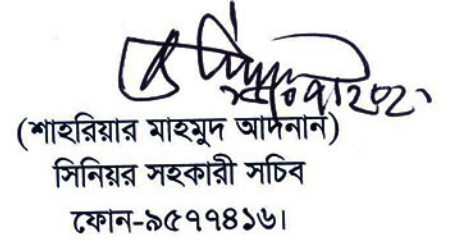 (শাহরিয়ার মাহমুদ আদনান)
সিনিয়র সহকারী সচিব
ফোন-৯৫৭৭৪১৬।